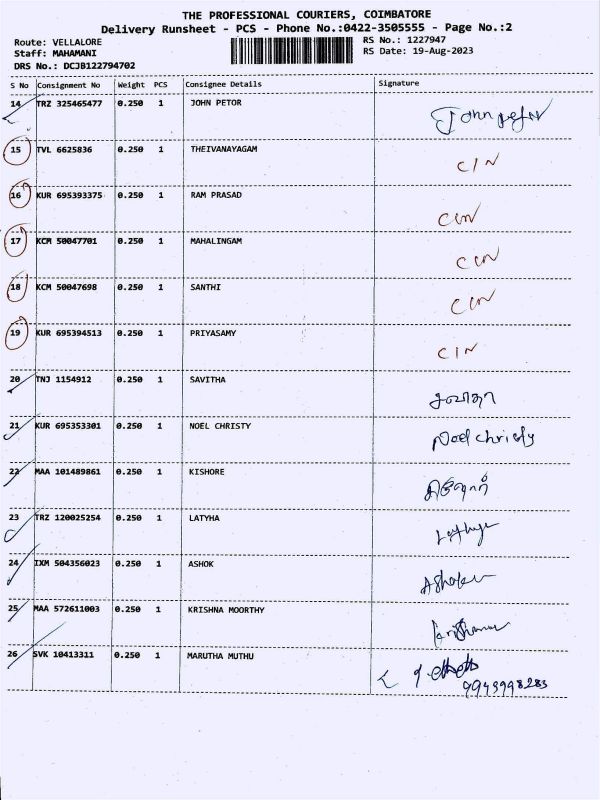 THE PROFESSIONAL COURIERS, COIMBATORE
Delivery Runsheet - PCS - Phone No.:0422-3505555 - Page No.:2
Route: VELLALORE
Staff: MAHAMANI
DRS No.: DCJB122794702
RS No.: 1227947
RS Date: 19-Aug-2023
S No Consignment No Weight PCS Consignee Details Signature
14 TRZ 325465477 0.250 1 JOHN PETOR John peter
15 TVL 6625836 0.250 1 THEIVANAYAGAM CIN
16 KUR 695393375 0.250 1 RAM PRASAD CIN
17 KCM 50047701 0.250 1 MAHALINGAM CIN
18 KCM 50047698 0.250 1 SANTHI CIN
19 KUR 695394513 0.250 1 PRIYASAMY CIN
20 TNJ 1154912 0.250 1 SAVITHA
21 KUR 695353301 0.250 1 NOEL CHRISTY Noel christy
22 MAA 101489861 0.250 1 KISHORE
23 TRZ 120025254 0.250 1 LATYHA
24 IXM 504356023 0.250 1 ASHOK
25 MAA 572611003 0.250 1 KRISHNA MOORTHY
26 SVK 10413311 0.250 1 MARUTHA MUTHU